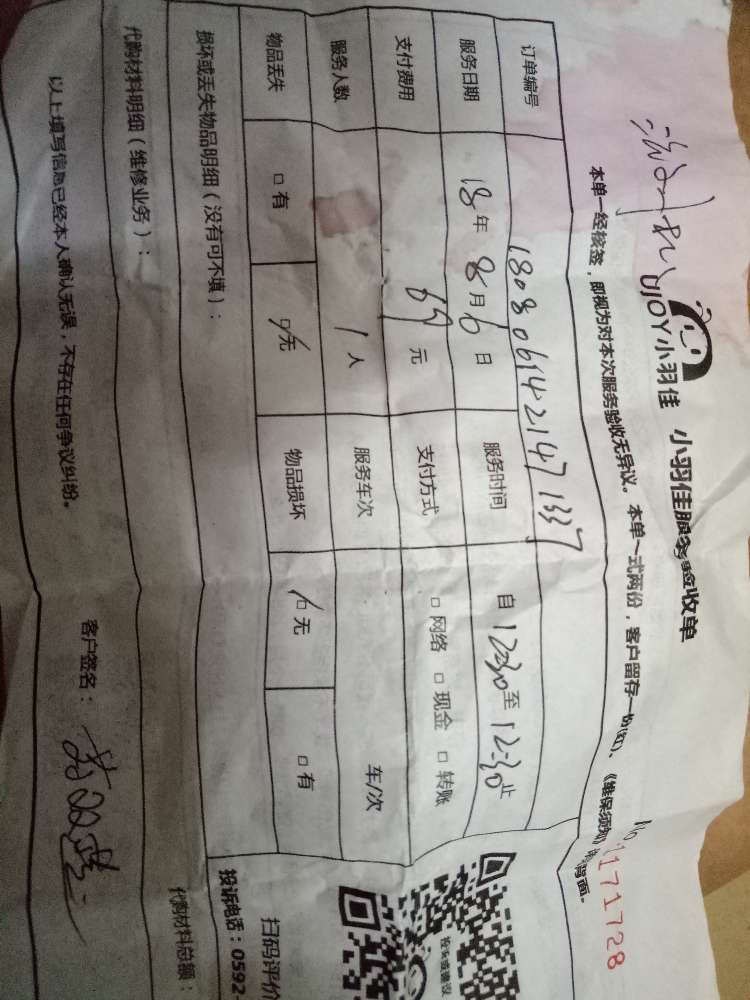 洗油烟机
UJOY小羽佳 小羽佳服务验收单
No 1171728
本单一经核签，即视为对本次服务验收无异议。本单一式两份，客户留存一份(红)、《维保须知》背面。
订单编号 18080614214713​37
服务日期 18年 8月 6日 服务时间 自 12:30至 12:30止
支付费用 69 元 支付方式 □网络 □现金 □转账
服务人数 1 人 服务车次 车/次
物品丢失 □有 □无 物品损坏 □无 □有
损坏或丢失物品明细（没有可不填）：
扫码评价
投诉电话：0592-
代购材料明细（维修业务）：
代购材料总额：
以上填写信息已经本人确认无误，不存在任何争议纠纷。 客户签名：